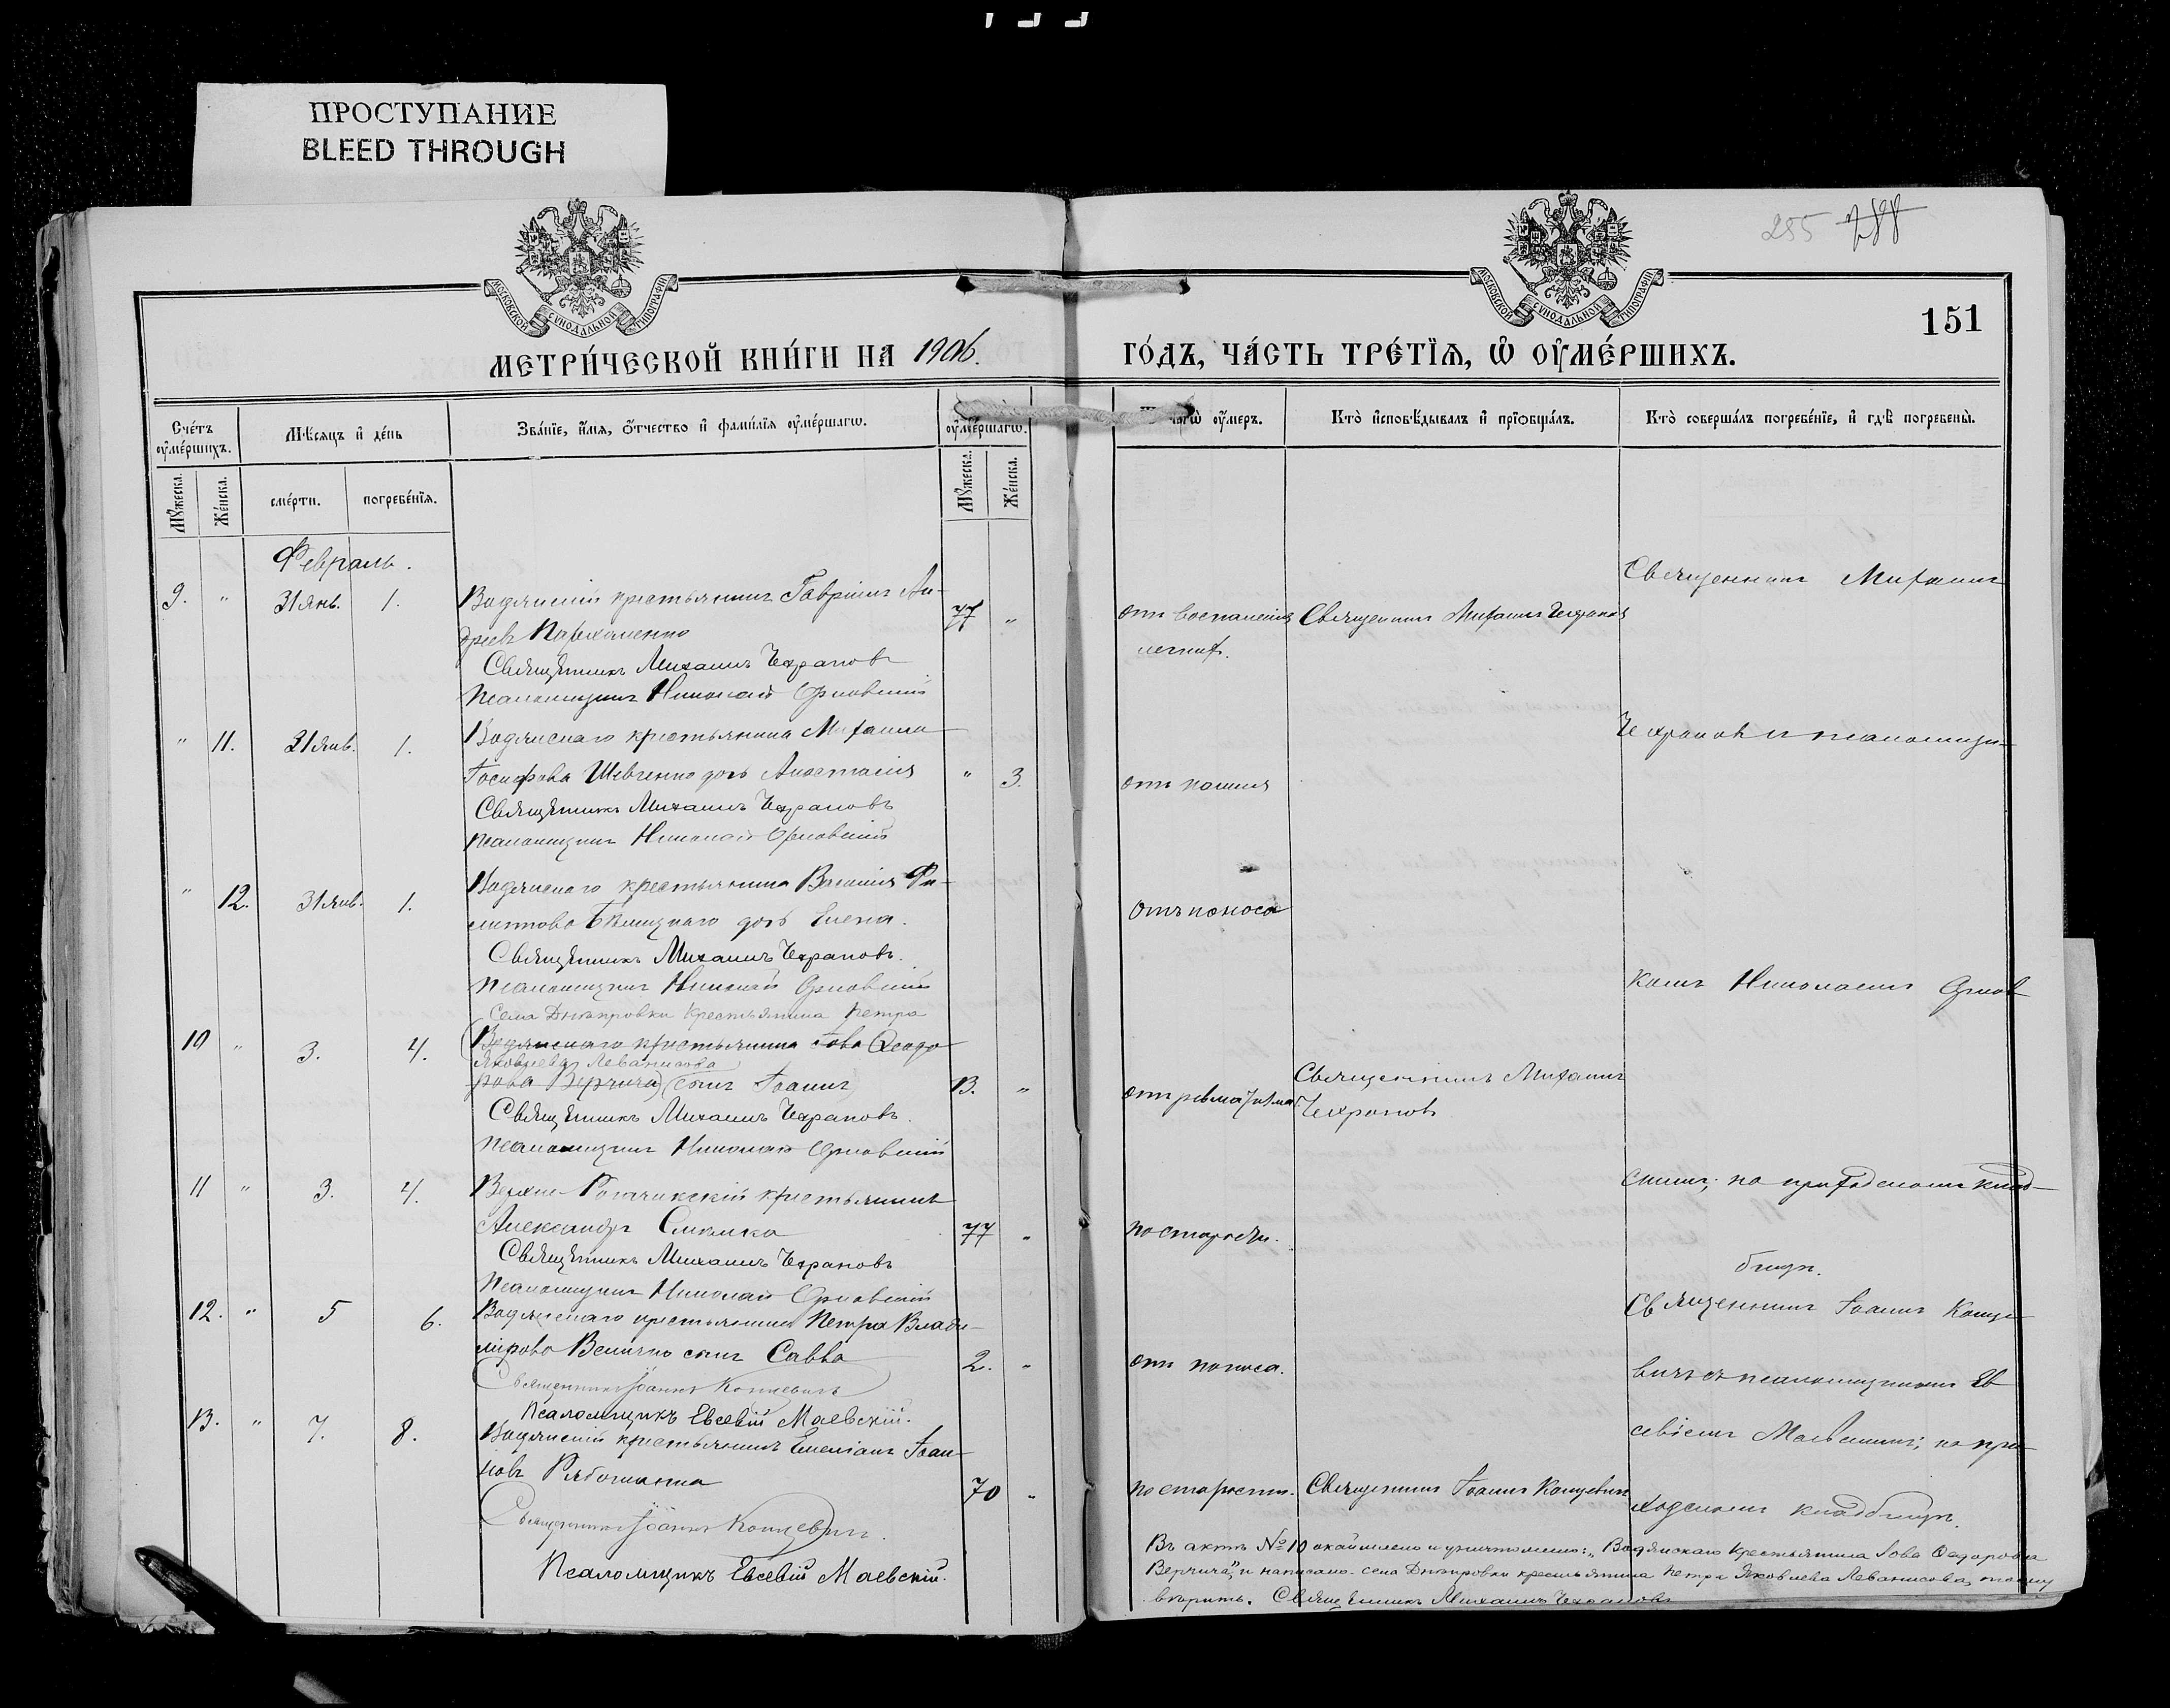 ПРОСТУПАНИЕ
BLEED THROUGH
МОСКОВСКОЙ СѴНОДАЛЬНОЙ ТИПОГРАФІИ
МОСКОВСКОЙ СѴНОДАЛЬНОЙ ТИПОГРАФІИ
285 288
151
МЕТРИ́ЧЕСКОЙ КНИ́ГИ НА 1906.
ГО́ДЪ, ЧА́СТЬ ТРЕ́ТЇѦ, Ѡ҆ ОУ҆МЕ́РШИХЪ.
Сче́тъ оу҆ме́ршихъ.
Мѣ́сяцъ и҆ де́нь
Зва́нїе, и҆́мѧ, ѻ҆́тчество и҆ фами́лїѧ оу҆ме́ршагѡ.
оу҆ме́ршагѡ.
чегѡ̀ оу҆́меръ.
Кто̀ и҆сповѣ́дывалъ и҆ прїѡбща́лъ.
Кто̀ соверша́лъ погребе́нїе, и҆ гдѣ̀ погребены̀.
Мꙋ́жеска.
Же́нска.
сме́рти.
погребе́нїѧ.
Мꙋ́жеска.
Же́нска.
Февраль.
9. " 31 Янв. 1. Водянскій крестьянинъ Гавріилъ Ан-
дреевъ Пархоменко 77 "
Священникъ Михаилъ Чехрановъ
Псаломщикъ Николай Орловскій
отъ воспаленія
легкихъ.
Священникъ Михаилъ Чехрановъ
Священникъ Михаилъ
" 11. 31 Янв. 1. Водянскаго крестьянина Михаила
Іосифова Шевченко дочь Анастасія " 3.
Священникъ Михаилъ Чехрановъ
Псаломщикъ Николай Орловскій
отъ кашля
Чехрановъ и псаломщи-
" 12. 31 Янв. 1. Водянскаго крестьянина Василія Фи-
липпова Бѣлицкаго дочь Елена.
Священникъ Михаилъ Чехрановъ.
Псаломщикъ Николай Орловскій
Отъ поноса
комъ Николаемъ Орлов
Села Днѣпровки Крестьянина Петра
10 " 3. 4. (Водянскаго крестьянина Іова Ѳеодо-
Яковлева Леванисова
рова Верчича) сынъ Іоаннъ 13. "
Священникъ Михаилъ Чехрановъ.
Псаломщикъ Николай Орловскій
отъ ревматизма
Священникъ Михаилъ
Чехрановъ
11 " 3. 4. Верхне-Рогачикскій крестьянинъ
Александръ 77 "
Священникъ Михаилъ Чехрановъ
Псаломщикъ Николай Орловскій
по старости.
скимъ; на приходскомъ клад-
бищѣ.
12. " 5 6. Водянскаго крестьянина Петра Влади-
мірова Величко сынъ Савва 2. "
Священникъ Іоаннъ Концевичъ
Псаломщикъ Евсевій Маевскій.
отъ поноса.
Священникъ Іоаннъ Конце-
вичъ съ псаломщикомъ Ев
севіемъ Маевскимъ; на при-
ходскомъ кладбищѣ.
13. " 7. 8. Водянскій крестьянинъ Емеліанъ Іоан-
новъ 70 "
Священникъ Іоаннъ Концевичъ.
Псаломщикъ Евсевій Маевскій.
по старости.
Священникъ Іоаннъ Концевичъ
Въ актѣ № 10 окаймлено и уничтожено: „Водянскаго Крестьянина Іова Ѳедорова
Верчича", и написано села Днѣпровки крестьянина Петра Яковлева Леванисова, тому
вѣрить. Священникъ Михаилъ Чехрановъ